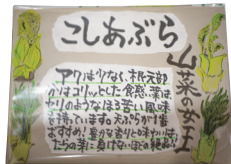 こしあぶら
山菜の女王
アクは少なく、根元部
分はコリッとした食感、薬味
ヤリのようなほろ苦い風味
を持っています。天ぷらが1番
おすすめ!豊かな香りと味わいは、
たらの芽に負けないほどの絶品!